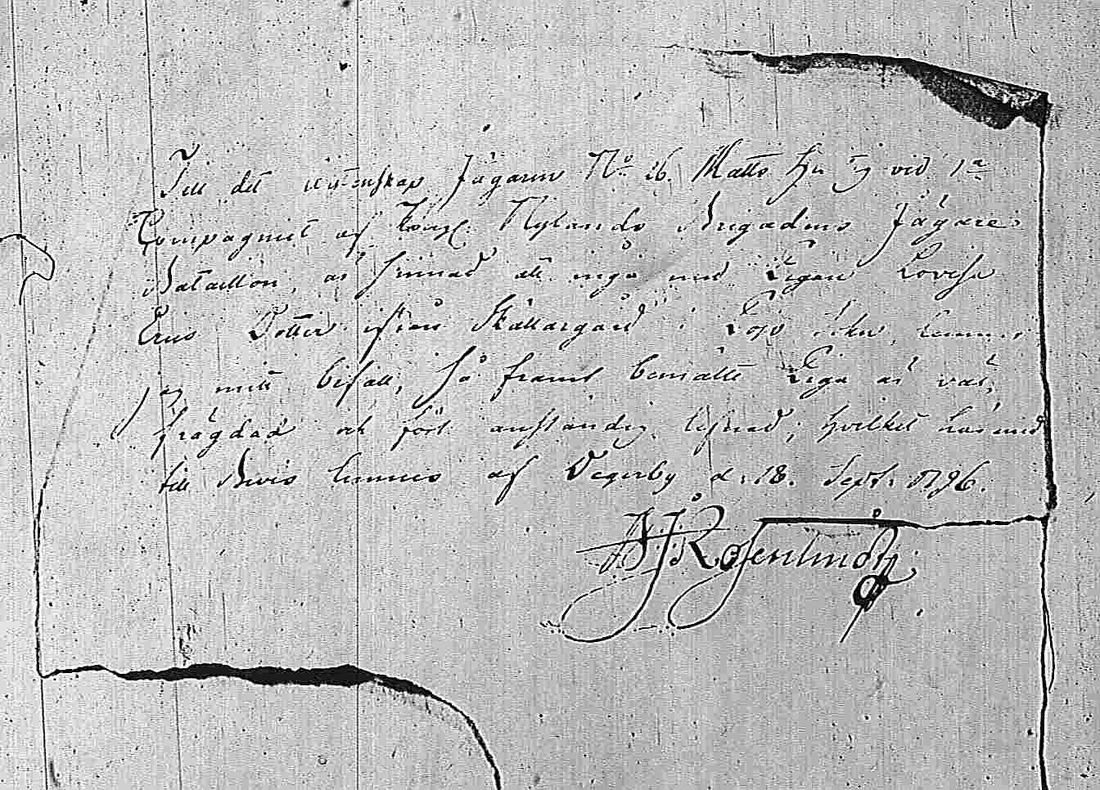 Till det ecktenskap Jägaren No 26. Matts Fri vid 1a
Compagniet af Kongl. Nylands Brigadens Jägare
Bataillon, är sinnad att ingå med Pigan Lovisa
Ers Dotter ifrån Skällargård i Lojo Sokn, lemnar
jag mitt bifall, så framt bemälte Piga är väl,
frägdad och fört anständig lefnad; hvilket härmed
till Bevis lemnas af Degerby d. 18. Sept. 1796.
Rosenlindt